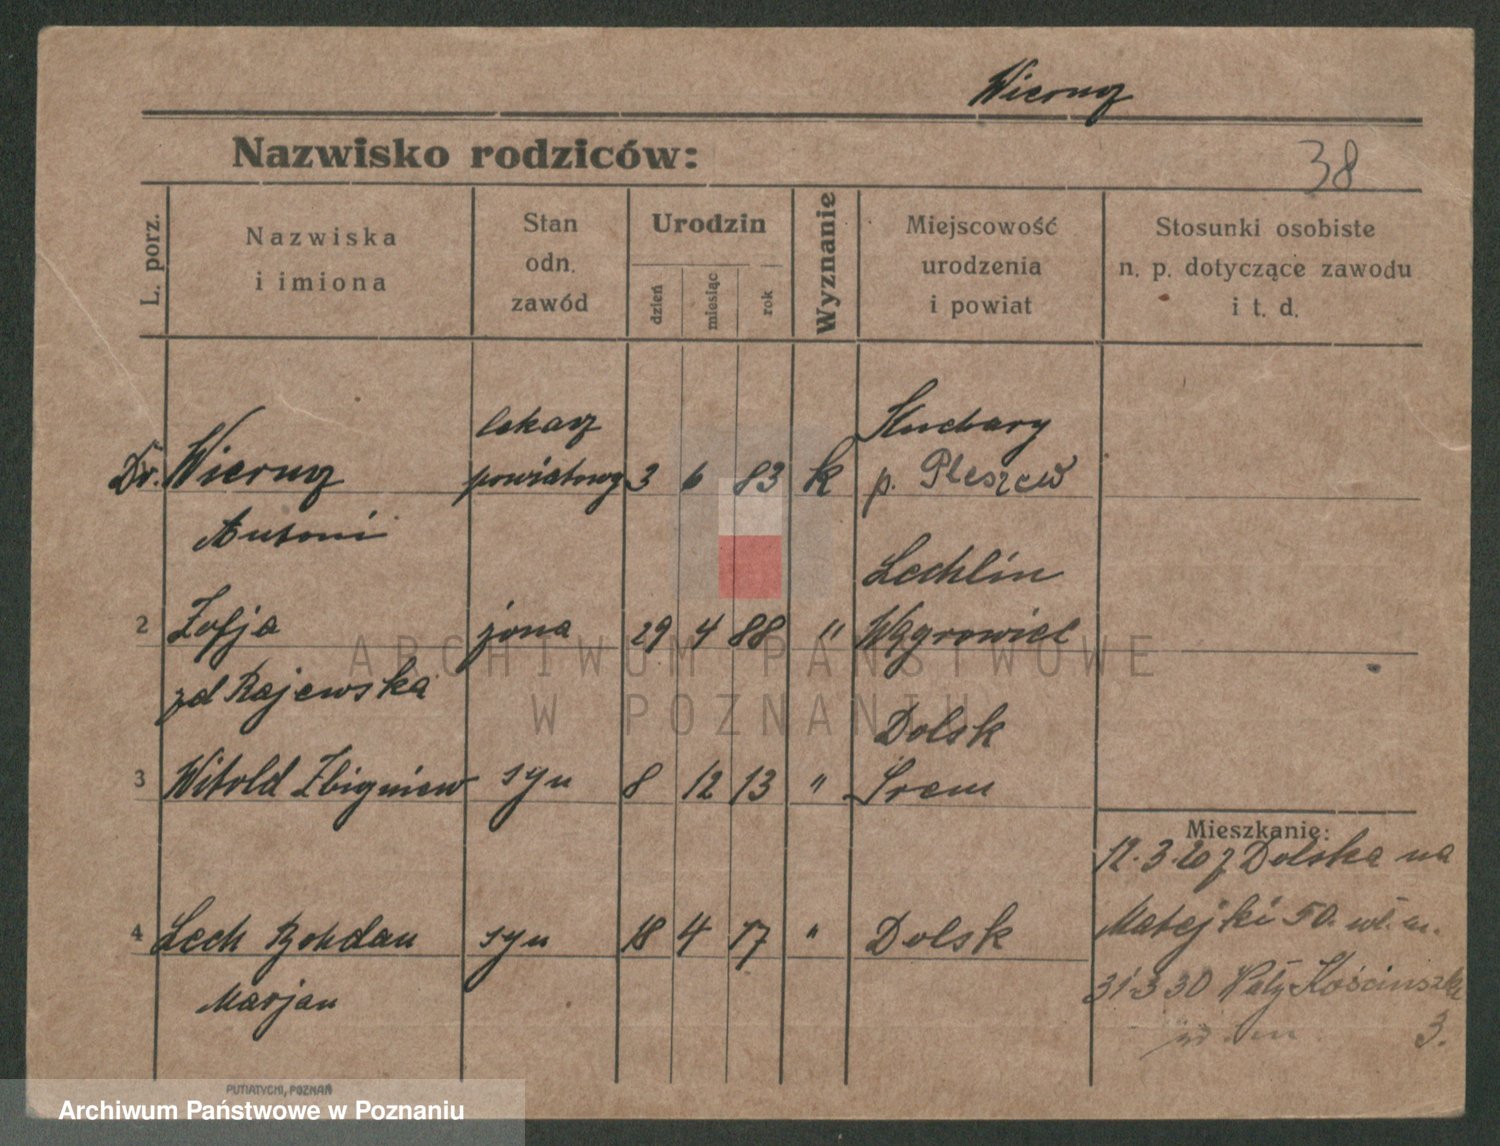 Wierusz
Nazwisko rodziców:
38
L. porz.
Nazwiska
i imiona
Stan
odn.
zawód
Urodzin
dzień
miesiąc
rok
Wyznanie
Miejscowość
urodzenia
i powiat
Stosunki osobiste
n. p. dotyczące zawodu
i t. d.
lekarz
Dr. Wierusz powiatowy 3 6 83 k
p. Pleszew
Antoni
Lechlin
2 Zofja żona 29 4 88 " Wągrowiec
zd Rajewska
Dolsk
3 Witold Zbigniew syn 8 12 13 " Śrem
Mieszkanie:
12.3.20 z Dolska na
4 Lech Bohdan syn 18 4 17 " Dolsk
Matejki 50. wł. m.
Marjan
31 3 30 Wały Kościuszki
3.
PUTIATYCKI, POZNAŃ
ARCHIWUM PAŃSTWOWE
W POZNANIU
Archiwum Państwowe w Poznaniu